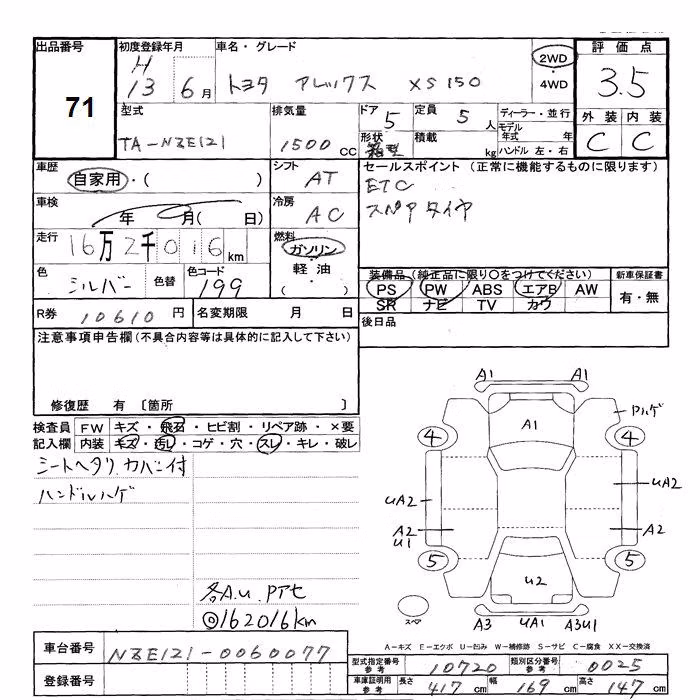 出品番号
71
初度登録年月
H
13 6月
車名・グレード
トヨタ アレックス XS150
2WD
・
4WD
評価点
3.5
外装 内装
C C
型式
TA-NZE121
排気量
1500 CC
ドア 5
形状 箱型
定員 5 人
積載 kg
ディーラー・並行
モデル年式 年
ハンドル 左・右
車歴
自家用・( )
シフト
AT
セールスポイント (正常に機能するものに限ります)
ETC
スペアタイヤ
車検
年 月( 日)
冷房
AC
走行
16万2千016km
燃料
ガソリン
・
軽油
( ・ )
色
シルバー
色替
色コード
199
装備品 (純正品に限り〇をつけてください)
PS PW ABS エアB AW
SR ナビ TV カワ
新車保証書
有・無
R券 10610 円
名変期限 月 日
後日品
注意事項申告欄(不具合内容等は具体的に記入して下さい)
修復歴 有 〔箇所 〕
検査員記入欄
FW キズ・飛石・ヒビ割・リペア跡・×要
内装 キズ・汚レ・コゲ・穴・スレ・キレ・破レ
シートヘタリ カバー付
ハンドルハゲ
各A.U.Pアセ
◎162016km
A1 A1
Pハゲ
A1
4 4
UA2 UA2
A2
U1
A2
5 5
U2
スペア
A3 UA1 A3U1
A-キズ E-エクボ U-凹み W-補修跡 S-サビ C-腐食 XX-交換済
車台番号
NZE121-0060077
登録番号
型式指定番号 参考 10720
類別区分番号 参考 0025
車庫証明用 参考 長さ 417cm 幅 169cm 高さ 147cm